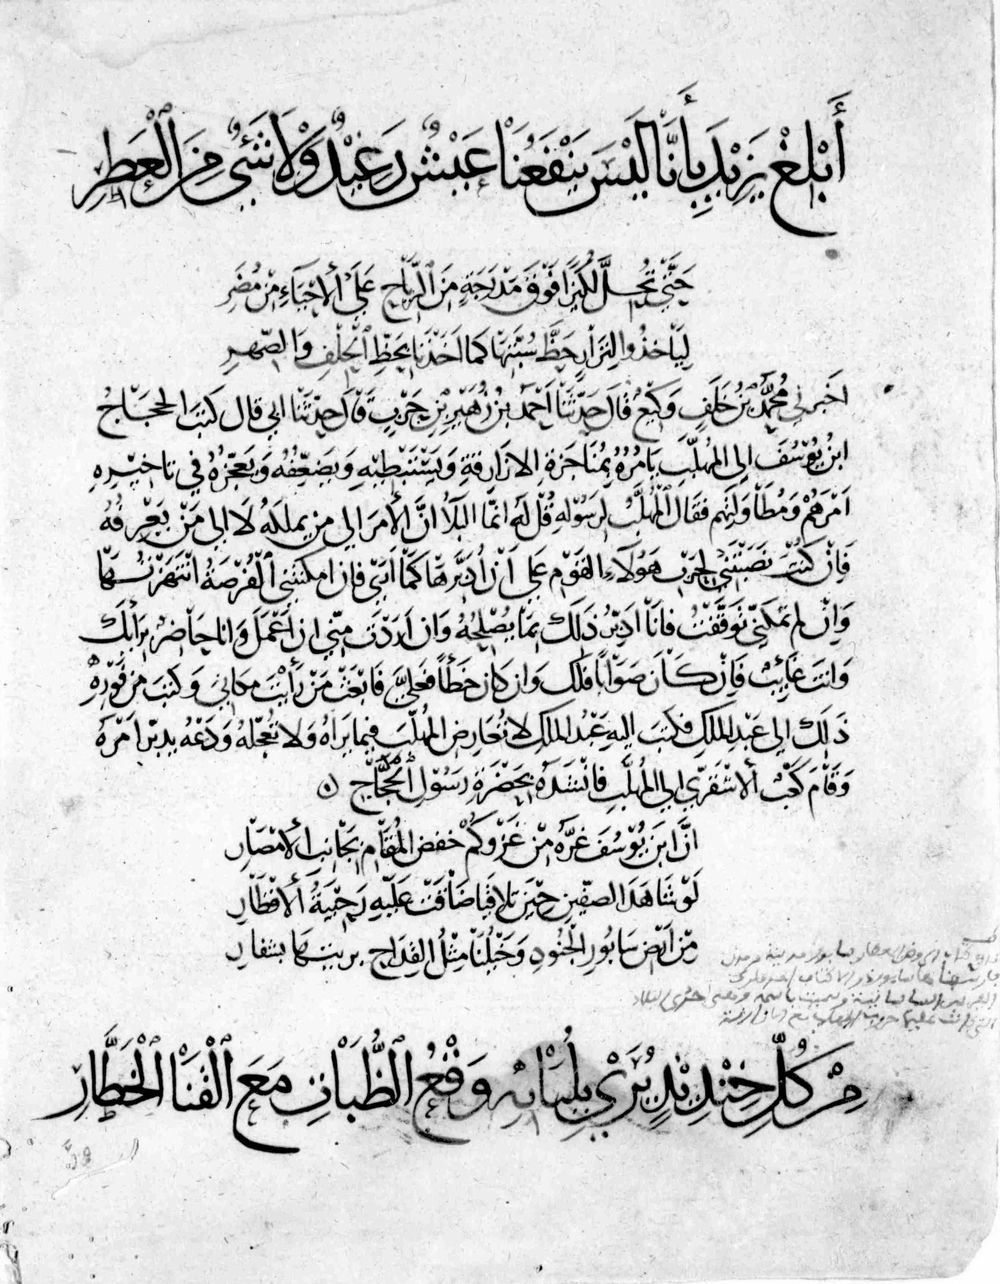 أَبْلِغْ يَزِيدَ بِأَنَّا لَيْسَ يَنْفَعُنَا عَيْشٌ رَغِيدٌ وَلَا شَيْءٌ مِنَ الْعَطِرِ
حَتَّى تَحُلَّ لُكَيْزًا فَوْقَ مَدْرَجَةٍ مِنَ الرِّيَاحِ عَلَى الْأَحْيَاءِ مِنْ مُضَرِ
لِيَأْخُذُوا لِنِزَارٍ حَظَّ سُبَّتِهَا كَمَا أَخَذْنَا بِحَظِّ الْحِلْفِ وَالصِّهْرِ
اخبرني مُحَمَّدُ بْنُ خَلَفٍ وَكِيعٌ قَالَ حَدَّثَنَا أَحْمَدُ بْنُ زُهَيْرِ بْنِ حَرْبٍ قَالَ حَدَّثَنَا ابي قال كتبَ الحجاجُ
ابنُ يُوسُفَ الى المُهَلَّبِ يَامُرُهُ بِمُنَاجَزَةِ الازَارِقَةِ وَيَسْتَبْطِيهِ وَيُضَعِّفُهُ وَيُعَجِّزُهُ في تاخيرِهِ
امْرَهُمْ وَمُطَاوَلَتِهِمْ فقال المُهَلَّبُ لِرَسُولِهِ قُلْ لَهُ انَّمَا البَلَاءُ انَّ الْأَمْرَ الى مَنْ يملكهُ لَا الى مَنْ يَعْرِفُهُ
فَانْ كُنْتَ نَصَبْتَنِي لِحَرْبِ هَؤُلَاءِ القَوْمِ على أَنْ اُدَبِّرَهَا كَمَا أَرَى فان امكنتني الْفُرْصَةُ انْتَهَزْتُهَا
وَانْ لم تُمكنِّي تَوَقَّفْتُ فَانَا ادَبِّرُ ذَلكَ بمَا يُصْلِحُهُ وَان ارَدْتَ مِنِّي ان أَعْمَلَ وَانا حَاضِرٌ بِرَأْيِكَ
وَانتَ غَائِبٌ فَانْ كَانَ صَوَابًا فَلَكَ وَان كانَ خَطَأً فَعَلَيَّ فَابْعَثْ مَنْ رَأَيْتَ مكانِي وَكتبَ من فَوْرِهِ
ذَلكَ الى عَبْدِ الملكِ فكتبَ اليهِ عَبْدُ الملكِ لا تُعَارِضِ المُهَلَّبَ فيما يَرَاهُ وَلا تُعْجِلْهُ وَدَعْهُ يدبّرْ امْرَهُ
وَقَامَ كَعْبٌ الاشْقَرِيُّ الى المُهَلَّبِ فانْشَدَهُ بِحَضْرَةِ رَسُولِ الْحَجَّاجِ
انَّ ابنَ يُوسُفَ غَرَّهُ مِنْ غَزْوِكُمْ خَفْضُ المُقَامِ بِجَانِبِ الْأَمْصَارِ
لَوْ شَاهَدَ الصفّينِ حِينَ تَلاقَيَا ضَاقَتْ عَلَيْهِ رَحِيبَةُ الْأَقْطَارِ
مِنْ ارْضِ سَابُورِ الْجُنُودِ وَخَيْلُنَا مِثْلُ القِدَاحِ بريتَهَا بشفارِ
مِنْ كُلِّ خِنْذِيذٍ يُرَى بِلَبَانِهِ وَقْعُ الظُّبَاتِ مَعَ الْقَنَا الْخَطَّارِ